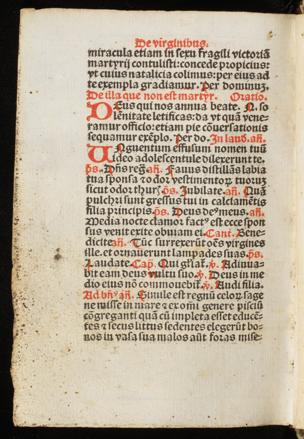 De virginibus.
miracula etiam in sexu fragili victoriā
martyrii contulisti: concede propicius:
vt cuius natalicia colimus: per eius ad
te exempla gradiamur. Per dominū.
De illa que non est martyr. Oratio.
DEus qui nos annua beate. N. so
lēnitate letificas: da vt quā vene-
ramur officio: etiam pie cōuersationis
sequamur exēplo. Per do. In laud. añ.
UNguentum effusum nomen tuū
ideo adolescentule dilexerunt te.
p̄s. Dñs reg̃. añ. Fauus distillās labia
tua sponsa odor vestimentoꝝ tuoruꝫ
sicut odor thur. p̄s. Jubilate. añ. Quā
pulchri sunt gressus tui in calciamētis
filia principis. p̄s. Deus de⁹ meus. añ.
Media nocte clamor fact⁹ est ecce spon
sus venit exite obuiam ei. Cant̄. Bene-
dicite añ. Tūc surrexerūt oēs virgines
ille. et ornauerunt lampades suas p̄s.
Laudate. Cap. Qui gl̄iat̃. ℟. Adiuua-
bit eam deus vultu suo. ℣. Deus in me
dio eius nō commouebit̃. ℣. Audi filia.
Ad bñ⁹ añ. Simile est regnū celoꝝ sage
ne misse in mare et ex oī genere pisciū
cōgreganti quā cū impleta esset educē-
tes et secus littus sedentes elegerūt bo-
nos in vasa sua malos aūt foras mise-